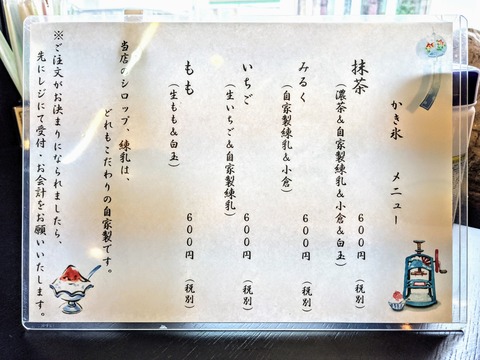 かき氷　メニュー
抹茶　６００円　（税別）
（濃茶＆自家製練乳＆小倉＆白玉）
みるく　６００円　（税別）
（自家製練乳＆小倉）
いちご　６００円　（税別）
（生いちご＆自家製練乳）
もも　６００円　（税別）
（生もも＆白玉）
当店のシロップ、練乳は、
どれもこだわりの自家製です。
※ご注文がお決まりになられましたら、
先にレジにて受付・お会計をお願いいたします。